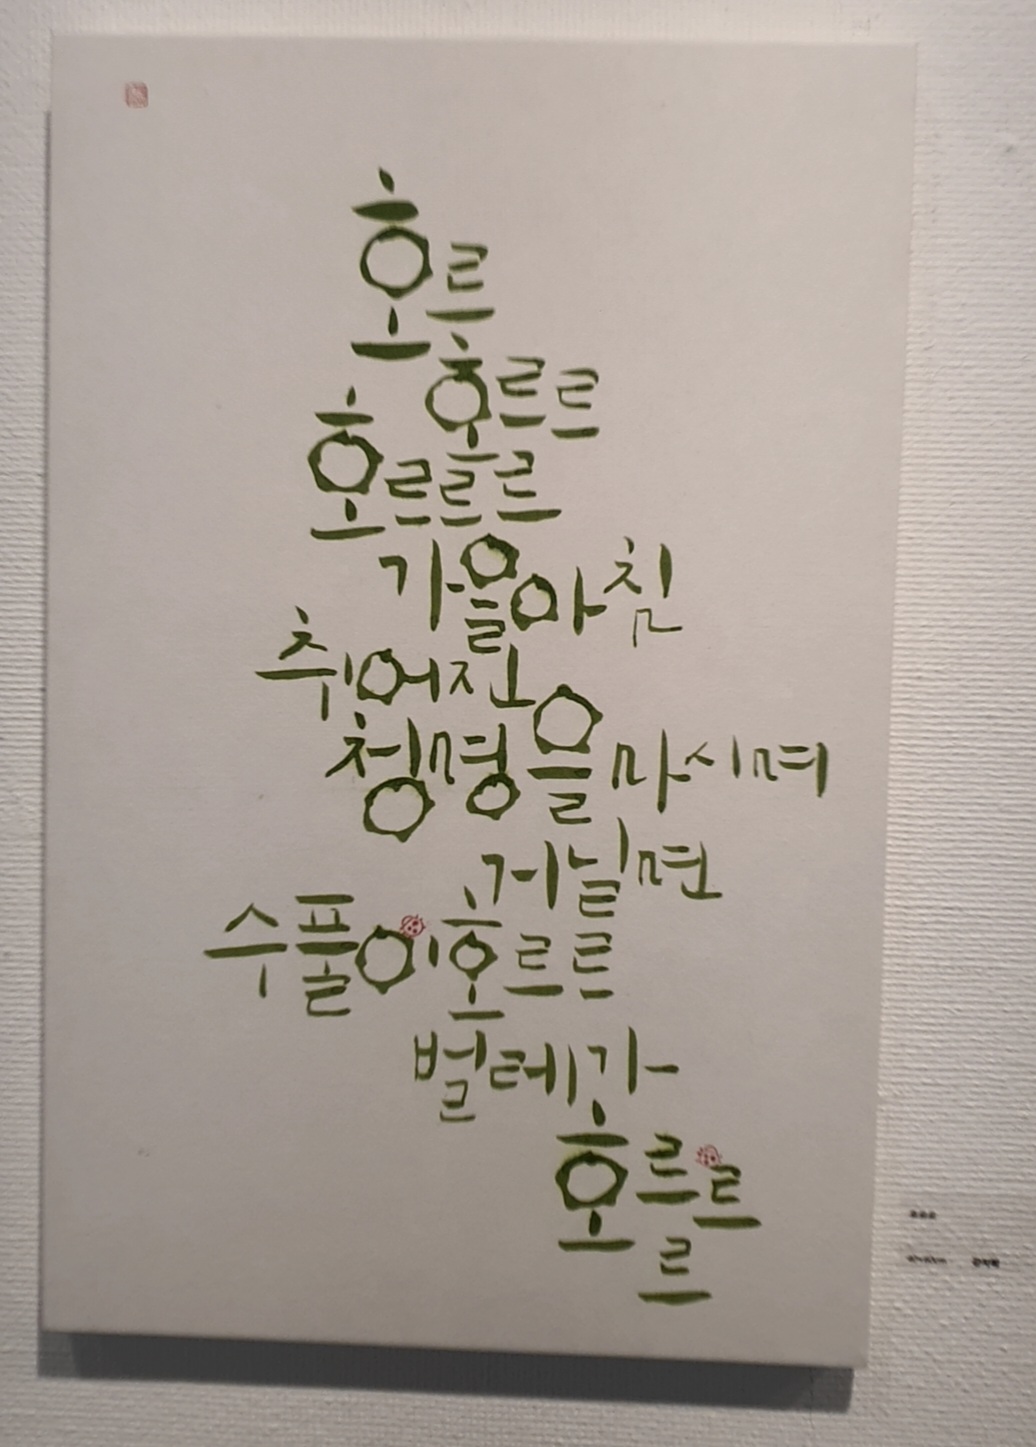 호르
호르르
호르르르
가을아침
취어진
청명을 마시며
거닐면
수풀이 호르르
벌레가
호르르
르